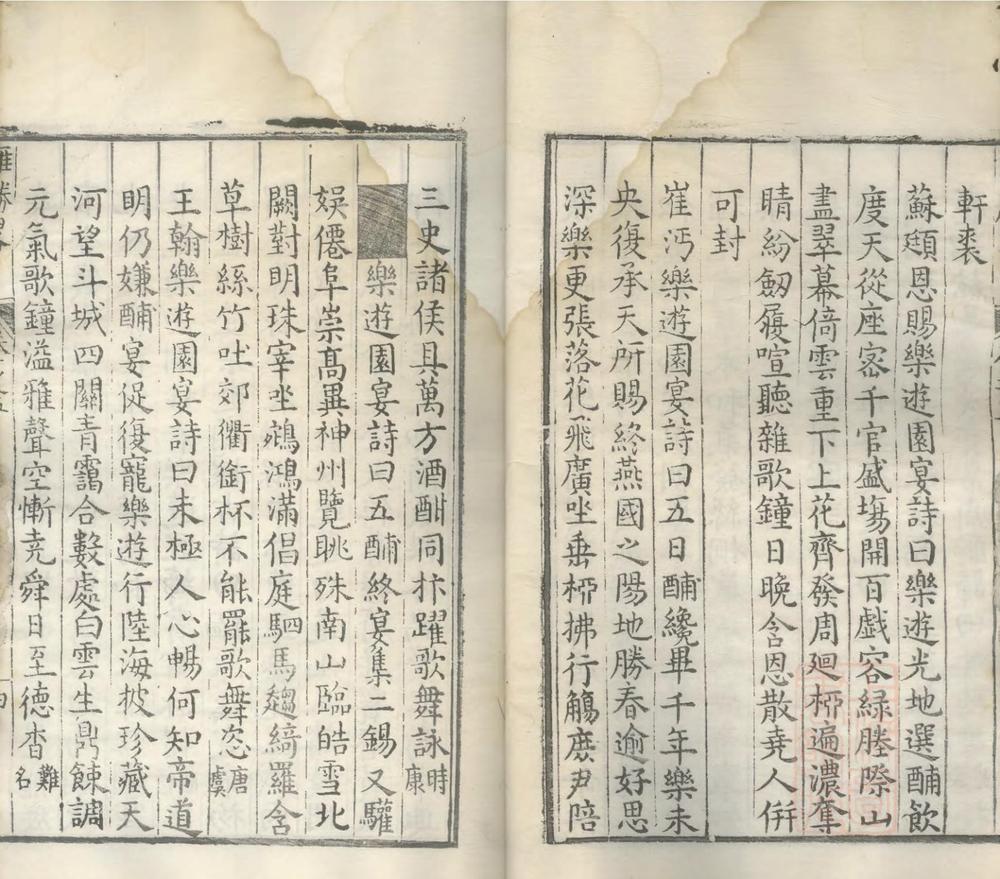 軒裘
蘇頲恩賜樂遊園宴詩曰樂遊光地選酺飲
度天從座宻千官盛塲開百戲容緑塍際山
盡翠幕倚雲重下上花齊發周廻桺遍濃奪
晴紛劒履喧聽雜歌鐘日晚含恩散堯人併
可封
崔沔樂遊園宴詩曰五日酺纔畢千年樂未
央復承天所賜終燕國之陽地勝春逾好思
深樂更張落花飛廣坐垂桺拂行觴庻尹陪
三史諸侯具萬方酒酣同抃躍歌舞詠時康
樂遊園宴詩曰五酺終宴集二錫又驩
娯僊阜崇髙異神州覽眺殊南山臨皓雪北
闕對明珠宰坐鵷鴻滿倡庭駟馬趨綺羅含
草樹絲竹吐郊衢銜杯不能罷歌舞恣唐虞
王翰樂遊園宴詩曰未極人心暢何知帝道
明仍嫌酺宴促復寵樂遊行陸海披珍藏天
河望斗城四關青靄合數處白雲生鼎餗調
元氣歌鐘溢雅聲空慚堯舜日至德杳難名